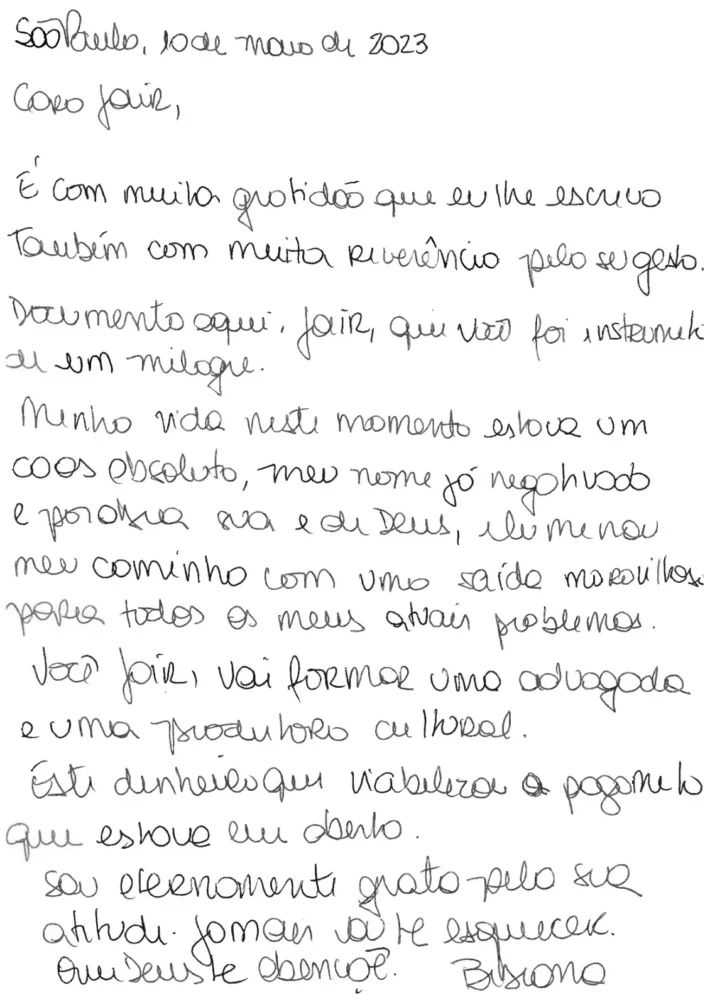 São Paulo, 10 de maio de 2023
Caro Jair,
É com muita gratidão que eu lhe escrevo
Também com muita reverência pelo seu gesto.
Documento aqui, Jair, que você foi instrument
de um milagre.
Minha vida neste momento estava um
caos absoluto, meu nome já negativado
e por obra sua e de Deus, iluminou
meu caminho com uma saída maravilhosa
para todos os meus atuais problemas.
Você Jair, vai formar uma advogada
e uma produtora cultural.
Este dinheiro que viabiliza o pagamento
que estava em aberto.
Sou eternamente grato pela sua
atitude. Jamais vou te esquecer.
Que Deus te abençoe.